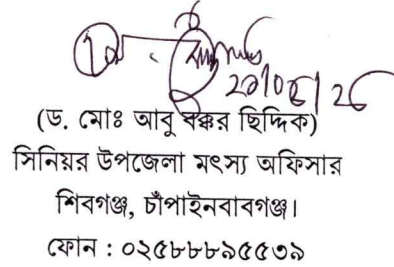 (ড. মোঃ আবু বক্কর ছিদ্দিক)
সিনিয়র উপজেলা মৎস্য অফিসার
শিবগঞ্জ, চাঁপাইনবাবগঞ্জ।
ফোন : ০২৫৮৮৮৯৫৫৩৯